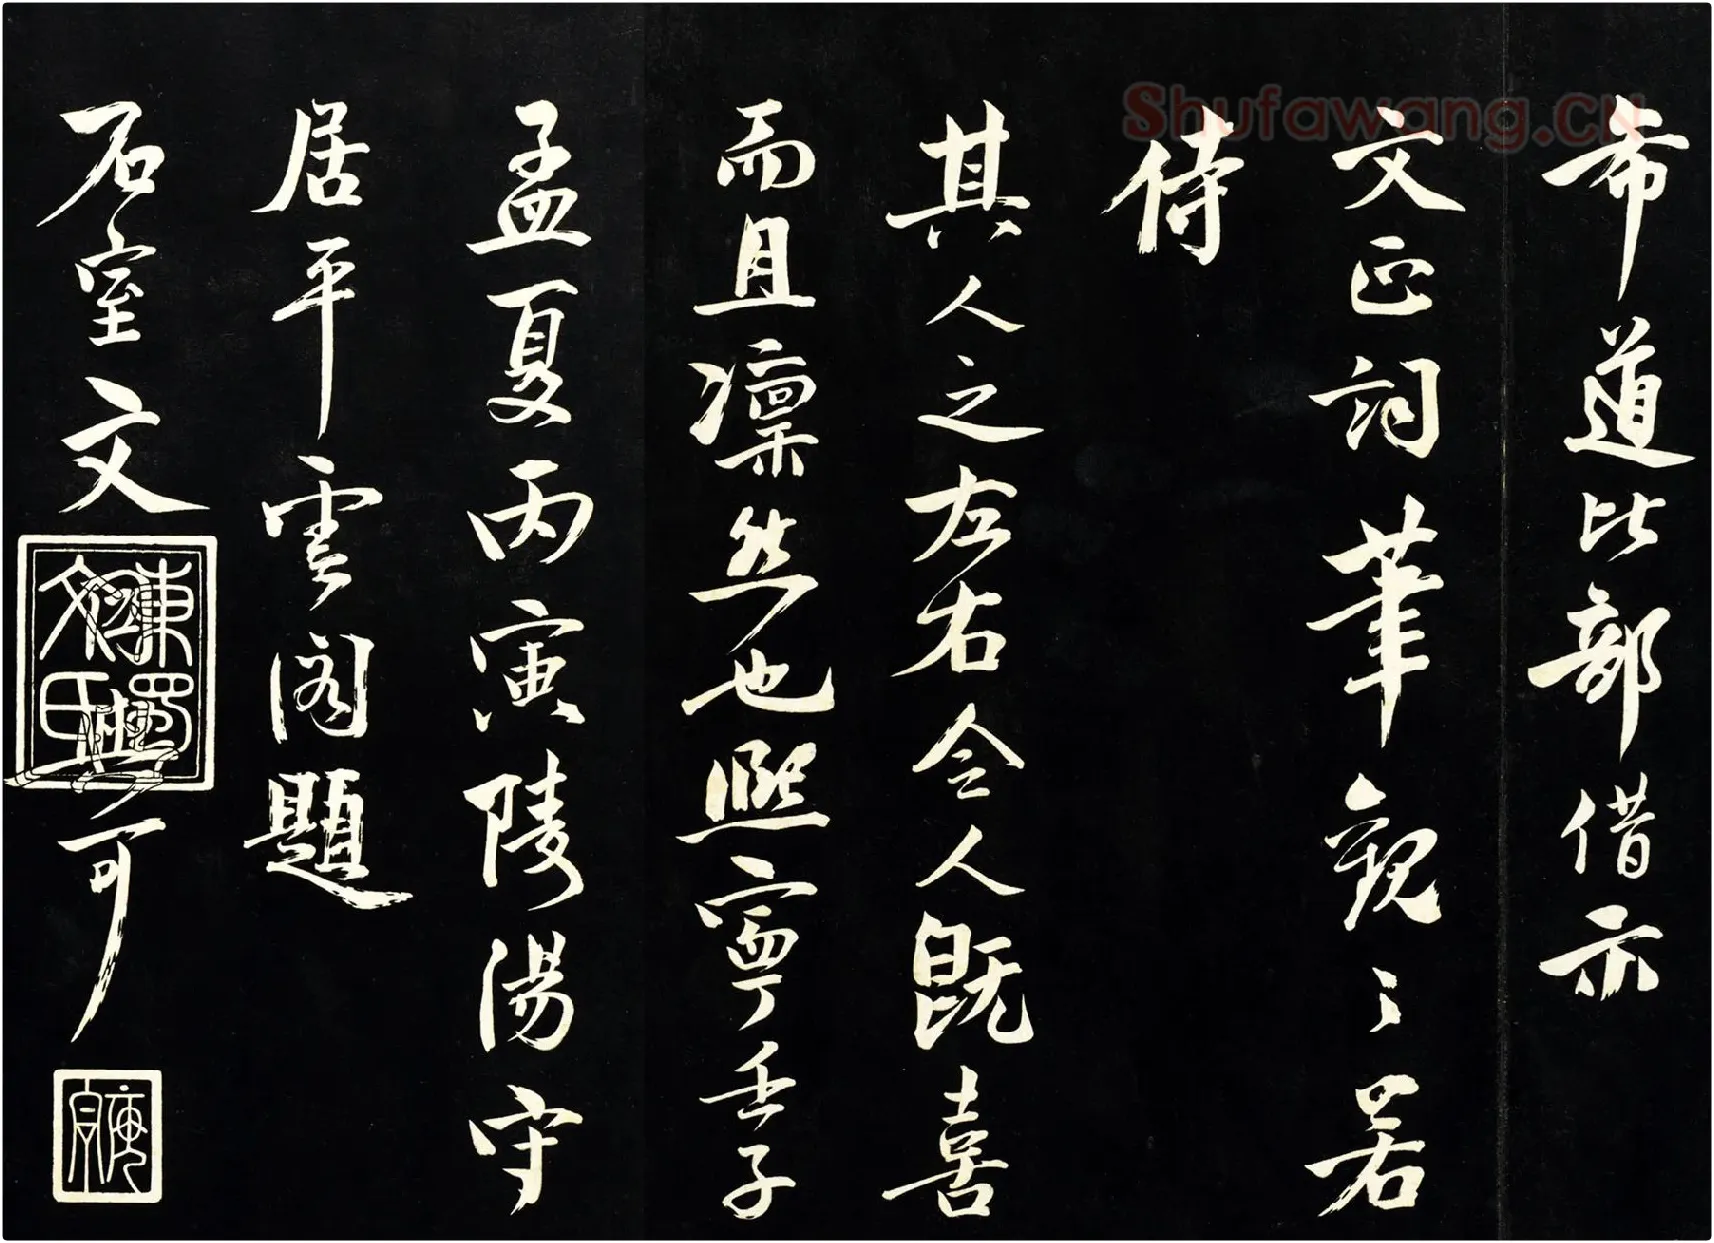 希道比部借示
文正詞筆觀之若
侍
其人之左右令人既喜
而且凜然也熙寧壬子
孟夏丙寅陵陽守
居平雲閣題
石室文
同
Shufawang.CN